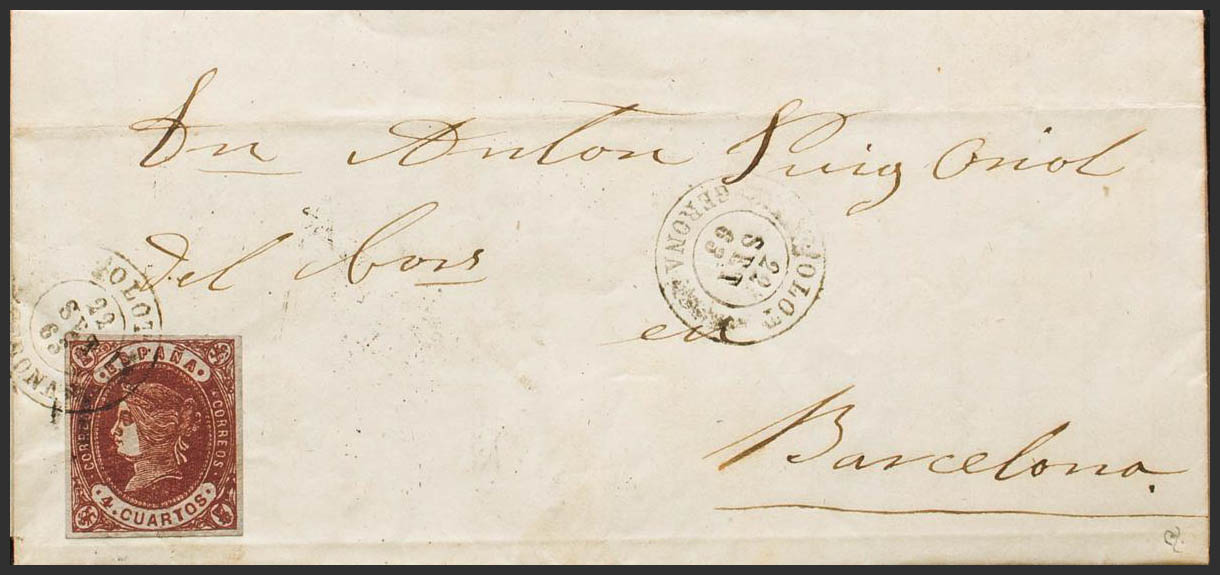 Sn Anton Puig Oriol
del
en
Barcelona.
OLOT
22
SET
63
GERONA
OLOT
22
SET
63
ONA
ESPAÑA
CORREOS
CORREOS
4. CUARTOS